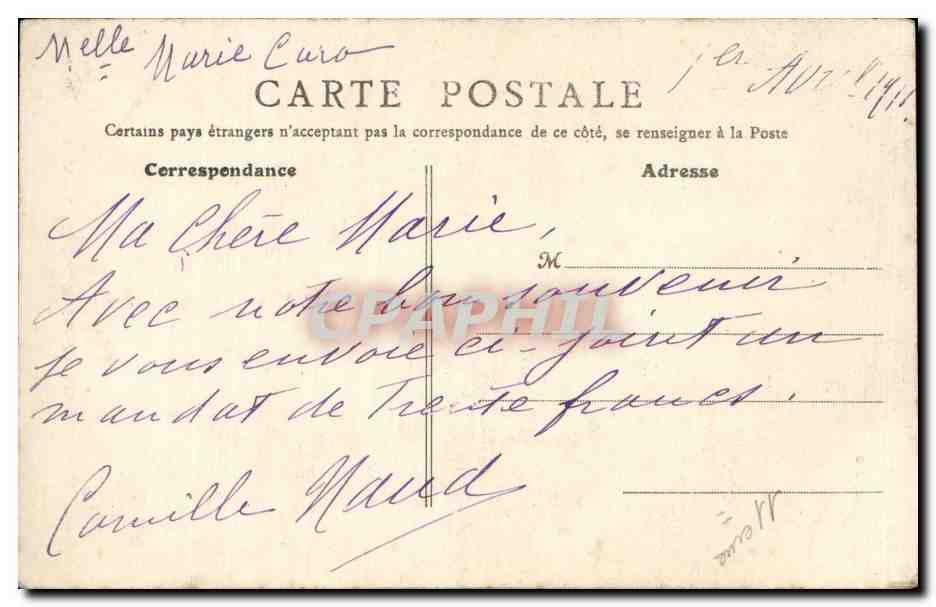 Melle Marie Caro
1er Avril
CARTE POSTALE
Certains pays étrangers n'acceptant pas la correspondance de ce côté, se renseigner à la Poste
Correspondance
Adresse
Ma Chère Marie,
M
Avec notre bon souvenir
CPAPHIL
je vous envoie ci-joint un
mandat de Trente francs.
Camille Naud